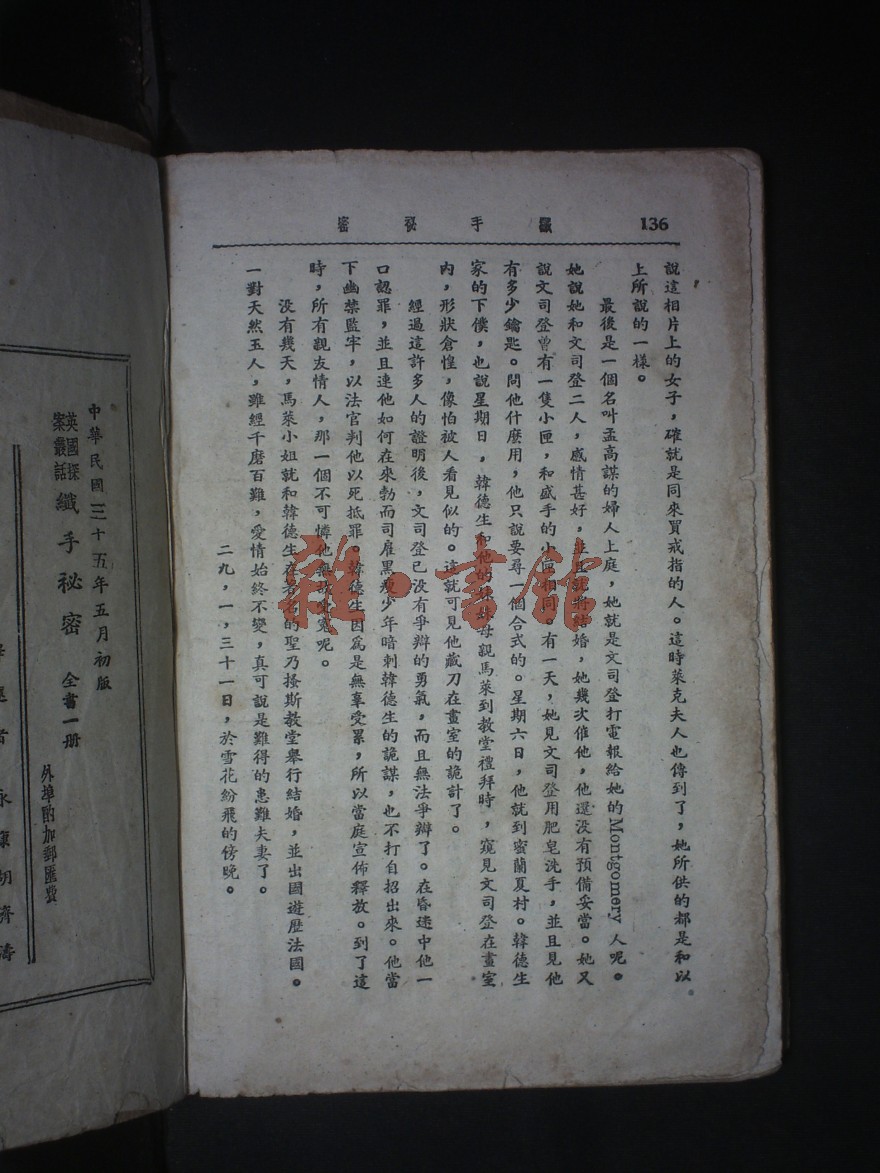 136
纖手祕密
說這相片上的女子，確就是同來買戒指的人。這時萊克夫人也傳到了，她所供的都是和以
上所說的一樣。
最後是一個名叫孟高謀的婦人上庭，她就是文司登打電報給她的Montgomery 人呢。
她說她和文司登二人，感情甚好，並且就將結婚，她幾次催他，他還沒有預備妥當。她又
說文司登曾有一隻小匣，和盛手的小匣相同。有一天，她見文司登用肥皂洗手，並且見他
有多少鑰匙。問他什麼用，他只說要尋一個合式的。星期六日，他就到蜜蘭夏村。韓德生
家的下僕，也說星期日，韓德生和他的妹妹母親馬萊到教堂禮拜時，窺見文司登在畫室
內，形狀倉惶，像怕被人看見似的。這就可見他藏刀在畫室的詭計了。
經過這許多人的證明後，文司登已沒有爭辯的勇氣，而且無法爭辯了。在昏迷中他一
口認罪，並且連他如何在來勃而司雇黑瘦少年暗刺韓德生的詭謀，也不打自招出來。他當
下幽禁監牢，以法官判他以死抵罪。韓德生因爲是無辜受累，所以當庭宣佈釋放。到了這
時，所有親友情人，那一個不可憐他無故受冤呢。
沒有幾天，馬萊小姐就和韓德生在著名的聖乃搔斯教堂舉行結婚，並出國遊歷法國。
一對天然玉人，雖經千磨百難，愛情始終不變，真可說是難得的患難夫妻了。
二九，一，三十一日，於雪花紛飛的傍晚。
中華民國三十五年五月初版
英國探案叢話 纖手祕密 全書一册
外埠酌加郵匯費
者 永康胡濟濤
雜·書館